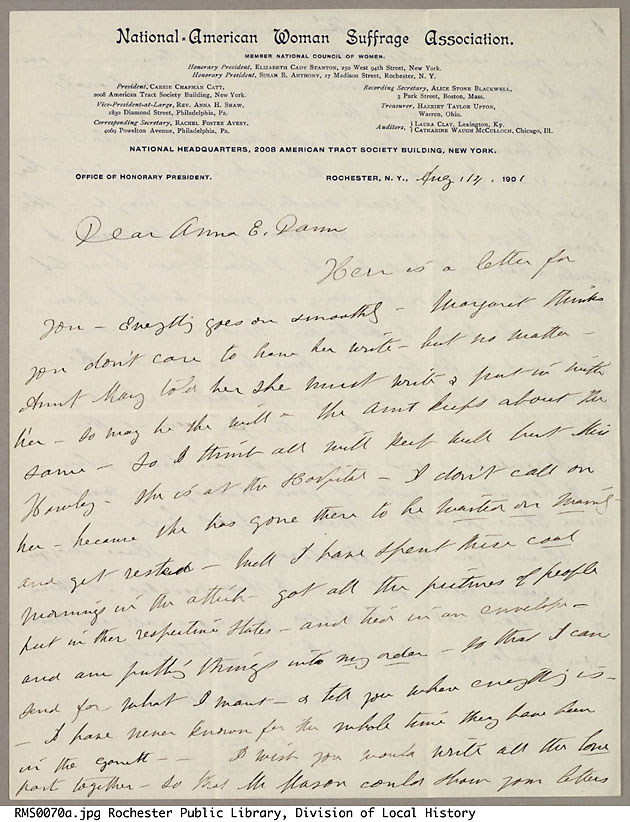 National-American Woman Suffrage Association.
MEMBER NATIONAL COUNCIL OF WOMEN.
Honorary President, ELIZABETH CADY STANTON, 250 West 94th Street, New York.
Honorary President, SUSAN B. ANTHONY, 17 Madison Street, Rochester, N. Y.
President, CARRIE CHAPMAN CATT,
2008 American Tract Society Building, New York.
Vice-President-at-Large, REV. ANNA H. SHAW,
1830 Diamond Street, Philadelphia, Pa.
Corresponding Secretary, RACHEL FOSTER AVERY,
4069 Powelton Avenue, Philadelphia, Pa.
Recording Secretary, ALICE STONE BLACKWELL,
3 Park Street, Boston, Mass.
Treasurer, HARRIET TAYLOR UPTON,
Warren, Ohio.
Auditors, { LAURA CLAY, Lexington, Ky.
CATHARINE WAUGH McCULLOCH, Chicago, Ill.
NATIONAL HEADQUARTERS, 2008 AMERICAN TRACT SOCIETY BUILDING, NEW YORK.
OFFICE OF HONORARY PRESIDENT. ROCHESTER, N. Y., Aug. 1901
Dear Anna E. Dann
Here is a letter for
you - Everything goes on smoothly - Margaret thinks
you don't care to have her write - but no matter -
Aunt Mary told her she must write & put in with
her - so may be she will - The Aunt keeps about the
same - so I think all will keep well but Miss
- she is at the Hospital - I don't call on
her - because she has gone there to be waited on
and get rested - Well I have spent these cool
mornings in the attic - got all the pictures of people
put in their respective States - and tied in an envelope -
and am putting things into my order - so that I can
send for what I want - & tell you where everything is -
- I have never known for the whole time they have been
in the garrett - - I wish you would write all the love
part together - so that Mr Mason could show your letters
RMS0070a.jpg Rochester Public Library, Division of Local History